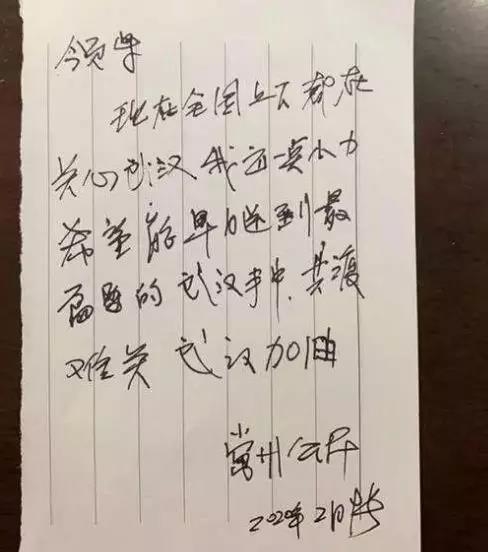 领导
现在全国上下都在
关心武汉我这一点小力
希望能早日送到最
需要的武汉手中.共渡
难关 武汉加油
常州公民
2020年2月